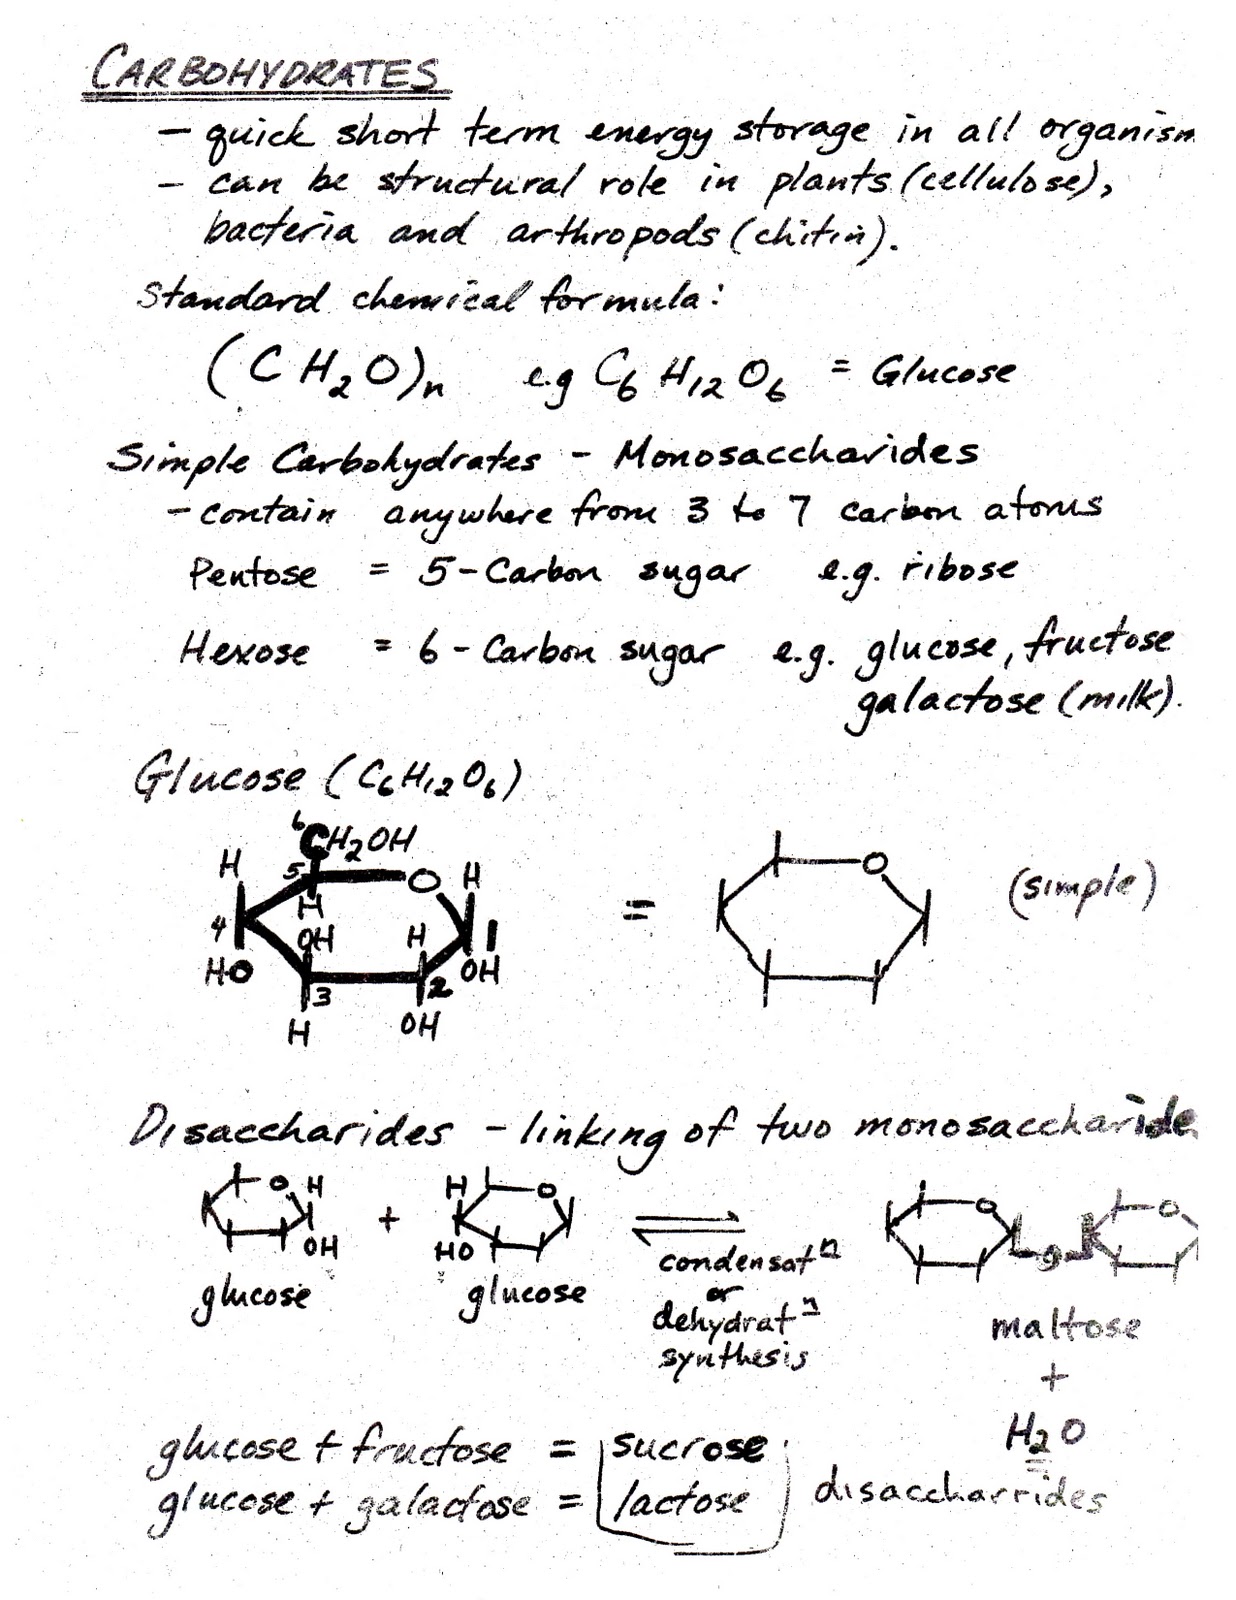 CARBOHYDRATES
– quick short term energy storage in all organism
– can be structural role in plants (cellulose),
bacteria and arthropods (chitin).
Standard chemical formula:
(CH₂O)n e.g C₆H₁₂O₆ = Glucose
Simple Carbohydrates – Monosaccharides
– contain anywhere from 3 to 7 carbon atoms
Pentose = 5-Carbon sugar e.g. ribose
Hexose = 6-Carbon sugar e.g. glucose, fructose
galactose (milk).
Glucose (C₆H₁₂O₆)
6 CH₂OH
H 5 O H
H
4 OH H 1
HO 3 2 OH
H OH
= O (simple)
Disaccharides – linking of two monosaccharide
O H + H O O O
OH HO O
glucose glucose condensatⁿ
or
dehydratⁿ
synthesis
maltose
+
H₂O
glucose + fructose = sucrose
glucose + galactose = lactose disaccharrides